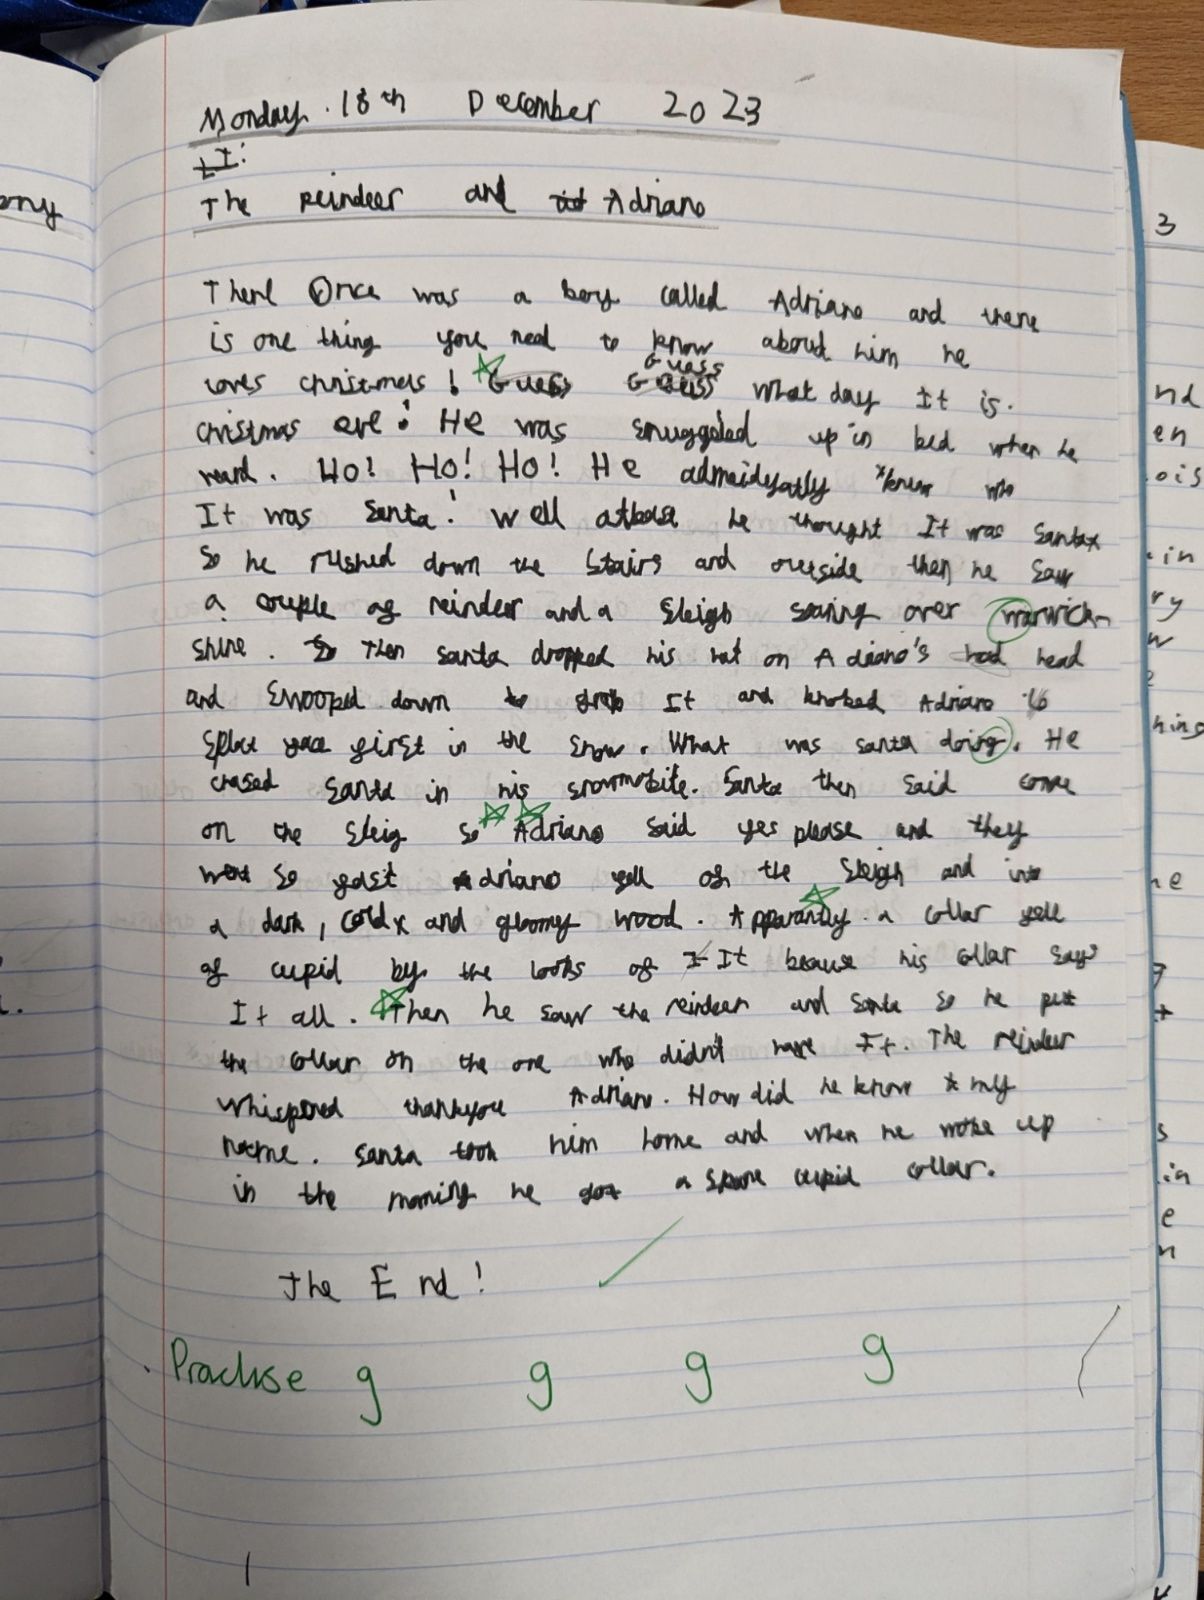 Monday. 18th December 2023
LI:
The reindeer and Adriano
There Once was a boy called Adriano and there
is one thing you need to know about him he
loves christmas! Guess Guess what day It is.
christmas eve! He was snuggeled up in bed when he
heard. Ho! Ho! Ho! He admeidyatly knew who
It was Santa! Well atbase he thought It was Santa
So he rushed down the Stairs and outside then he Saw
a couple of reindeer and a Sleigh soaring over warwick-
shire. Then santa dropped his hat on Adriano's head
and Swooped down to grab It and knobed Adriano to
Splat face first in the Snow. What was santa doing. He
chased Santa in his snowmobile. Santa then Said come
on the Sleig so Adriano Said yes please and they
went So fast Adriano fell of the Sleigh and into
a dark, cold and gloomy wood. Apparantly a collar fell
of cupid by the looks of It because his collar Says
It all. Then he saw the reindeer and Santa so he put
the collar on the one who didn't have It. The reindeer
whispered thankyou Adriano. How did he know my
name. Santa took him home and when he woke up
in the morning he got a spare cupid collar.
The End!
Practise g g g g
ony
3
nd
en
ois
in
ry
w
hing
he
s
in
e
n